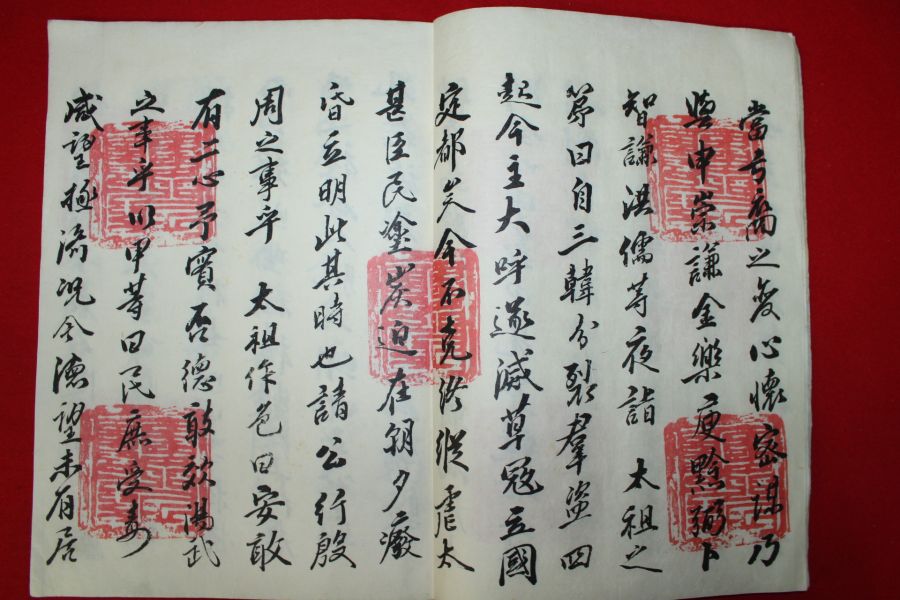 當弓裔之變心懷密謀乃
與申崇謙金樂庾黔弼卜
智謙洪儒等夜詣 太祖之
第曰自三韓分裂羣盜四
起今主大呼遂滅草寇立國
定都矣今不克終縱虐太
甚臣民塗炭迫在朝夕廢
昏立明此其時也請公行殷
周之事乎 太祖作色曰安敢
有二心予實否德敢效湯武
之事乎以申等曰民庶受毒
咸望極濟況今德望未有居